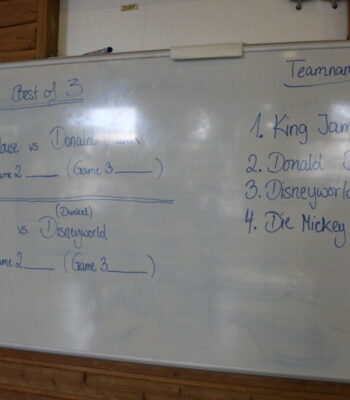 Best of 3
vs. Donald
Game 2 ____ (Game 3 ____)
(Dunkel)
vs Disneyworld
Game 2 ____ (Game 3 ____)
Teamnam
1. King Jam
2. Donald
3. Disneyworld
4. Die Mickey